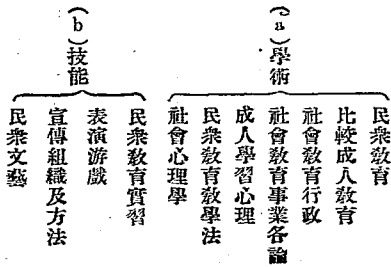 (a)學術
民衆敎育
比較成人敎育
社會敎育行政
社會敎育事業各論
成人學習心理
民衆敎育敎學法
社會心理學
(b)技能
民衆敎育實習
表演游戲
宣傳組織及方法
民衆文藝